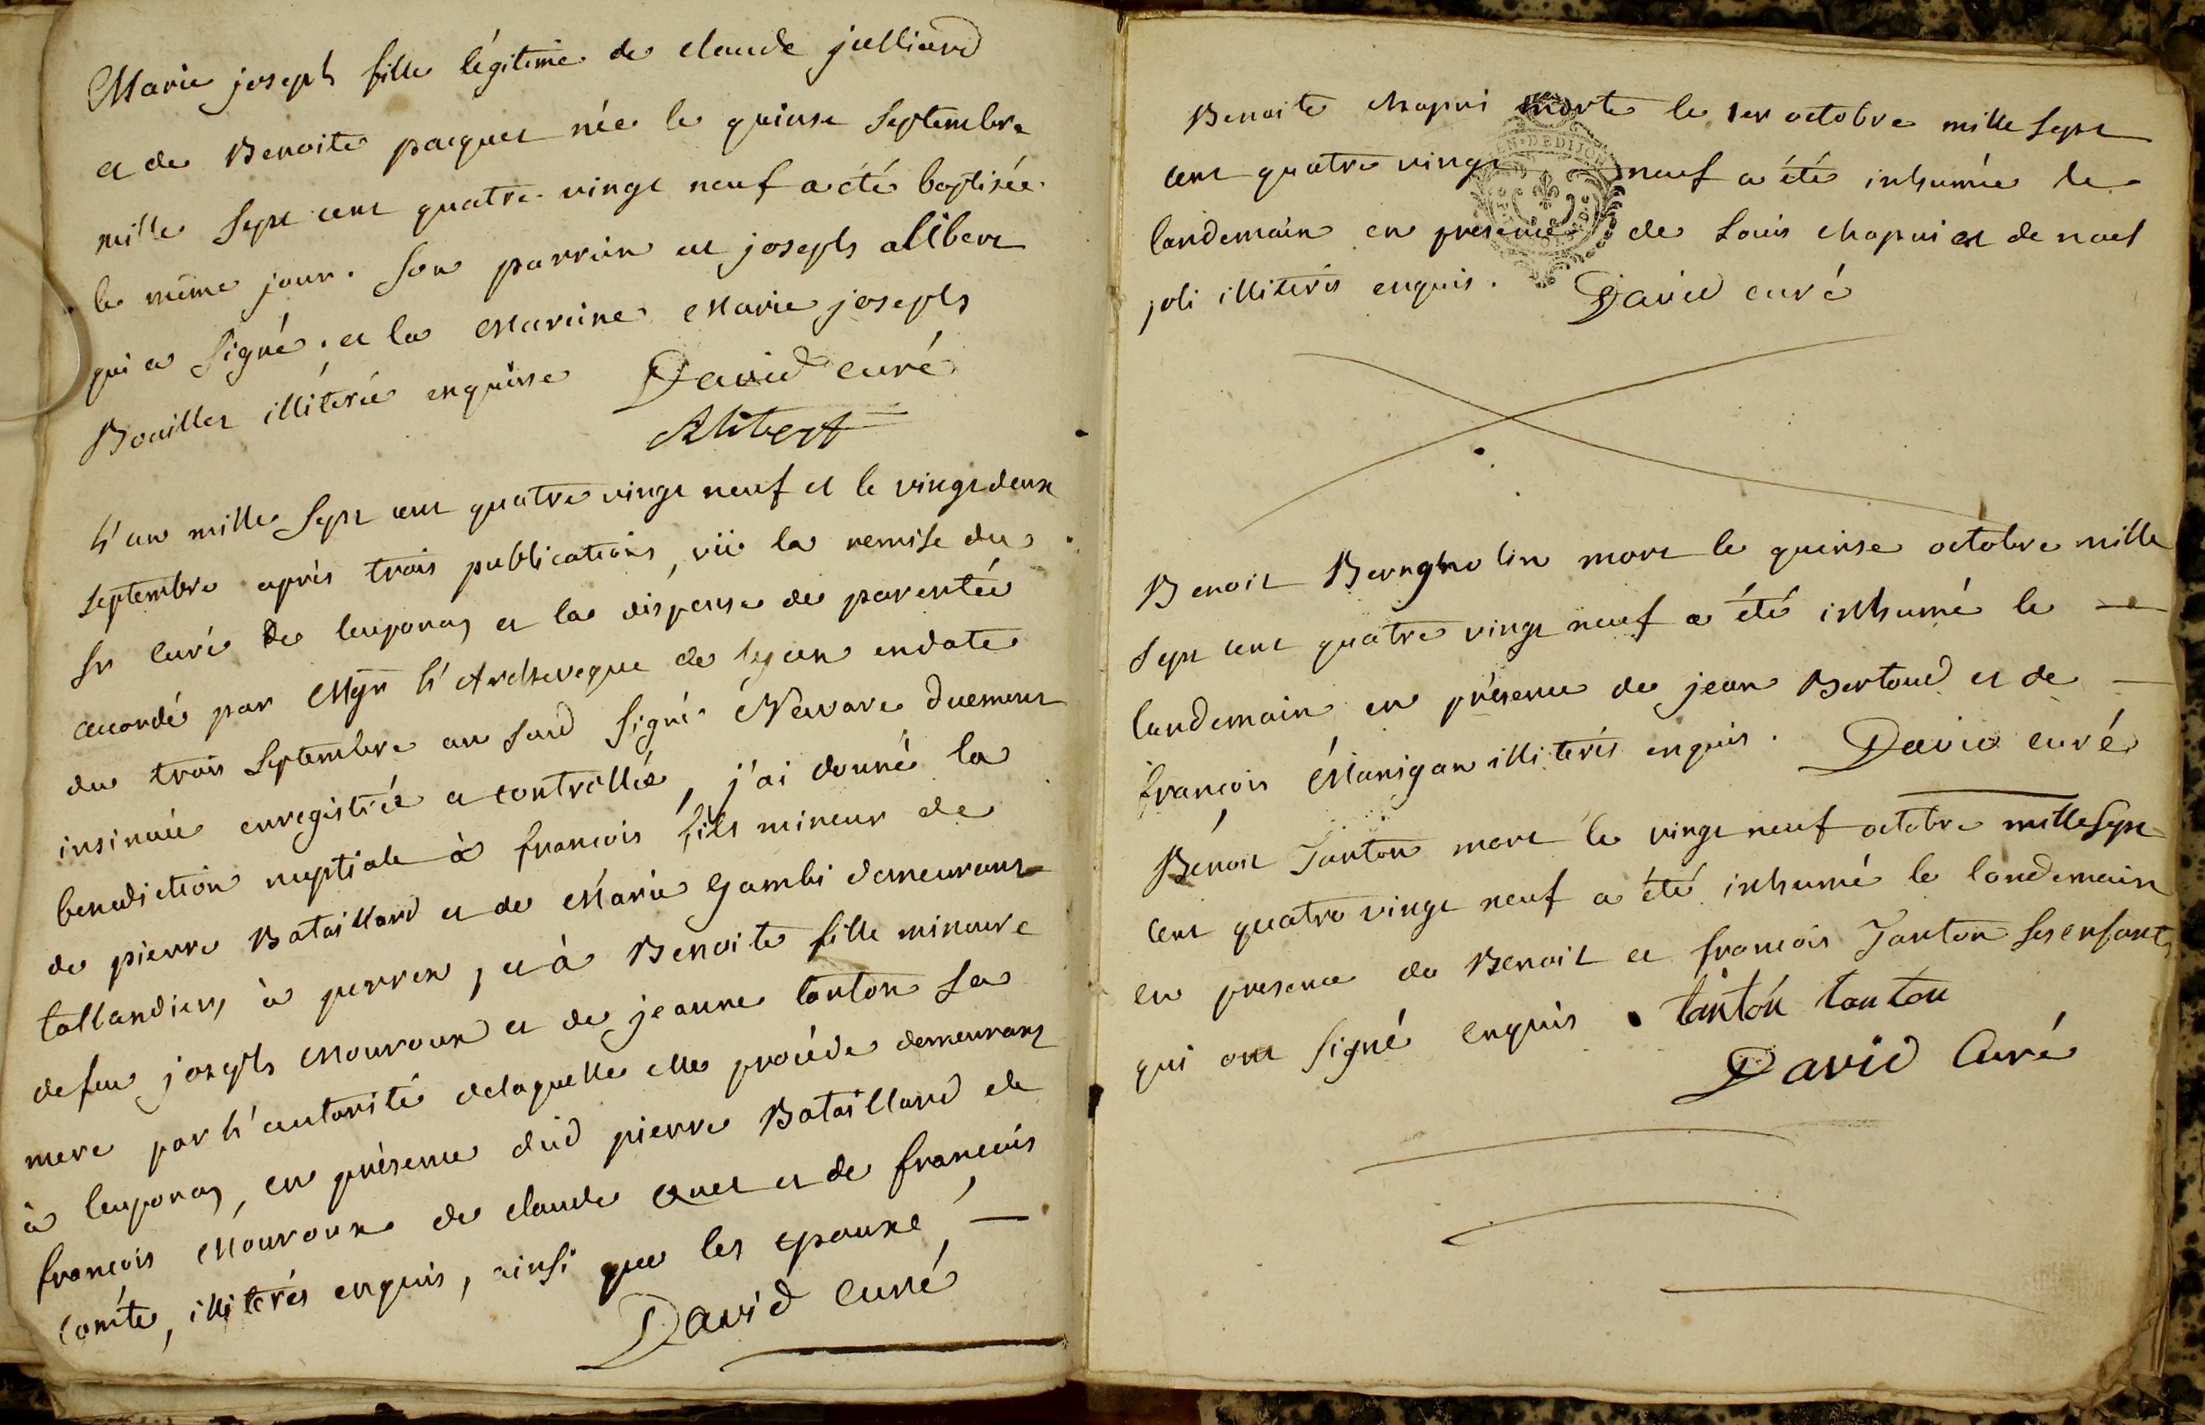 Marie joseph fille légitime de claude julliard
et de Benoite paquet née le quinse septembre
mille sept cent quatre-vingt neuf a été baptisée
le même jour. son parrin est joseph allibert
qui a signé. et la marrine marie joseph
Bouillet illitérée enquise David curé
Alibert
L'an mille sept cent quatre vingt neuf et le vingt deux
septembre après trois publications, vû la remise du
sr curé de leyponas et la dispense de parentée
accordé par Mgr L'Archeveque de lyon en date
du trois septembre an susd signé Navare duement
insinuée enregistrée et controllée, j'ai donné la
benediction nuptiale à françois fils mineur de
de pierre Bataillard et de Marie Gambi demeurant
tallandiers à perrex, et à Benoite fille mineure
defeu joseph Mouroux et de jeanne tonton sa
mere par L'autorité delaquelle elle procéde demeurant
à leyponas, en présence dud pierre Bataillard de
françois Mouroux de claude Quet et de françois
comte, illitérés enquis, ainsi que les epouxé,
David Curé
Benoite chapui morte le 1er octobre mille sept
cent quatre vingt neuf a été inhumée le
landemain en presence de Louis chapui et de noel
joli illiterés enquis. David curé
EN. DE DIJON
Benoit mort le quinse octobre mille
sept cent quatre vingt neuf a été inhumé le
landemain en présence de jean Bertoud et de
françois Manigan illiterés enquis. David curé
Benoit Tanton mort le vingt neuf octobre mille sept
cent quatre vingt neuf a été inhumé le landemain
en presence de Benoit et françois Tanton ses enfants
qui ont signé enquis. tanton tanton
David Curé